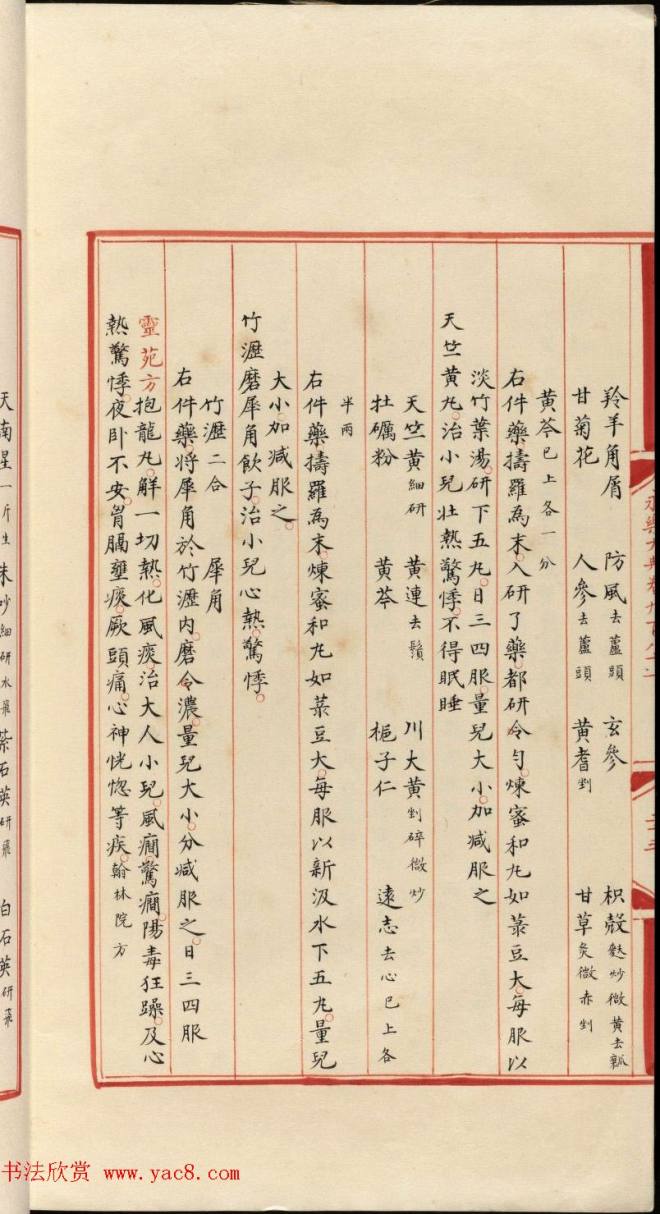 羚羊角屑 防風去蘆頭 玄參 枳殼麩炒微黃去瓤
甘菊花 人參去蘆頭 黃耆剉 甘草炙微赤剉
黃芩已上各一分
右件藥擣羅為末入研了藥都研令勻煉蜜和丸如菉豆大每服以
淡竹葉湯研下五丸日三四服量兒大小加減服之
天竺黃丸治小兒壯熱驚悸不得眠睡
天竺黃細研 黃連去鬚 川大黃剉碎微炒
牡礪粉 黃芩 梔子仁 遠志去心已上各
半兩
右件藥擣羅為末煉蜜和丸如菉豆大每服以新汲水下五丸量兒
大小加減服之
竹瀝磨犀角飲子治小兒心熱驚悸
竹瀝二合 犀角
右件藥將犀角於竹瀝內磨令濃量兒大小分減服之日三四服
靈苑方抱龍丸解一切熱化風痰治大人小兒風癎驚癎陽毒狂躁及心
熱驚悸夜卧不安胷膈壅痰厥頭痛心神恍惚等疾翰林院方
天南星一斤生 朱砂細研水飛 紫石英研飛 白石英研飛
永樂大典卷九百八十
书法欣赏 www.yac8.com